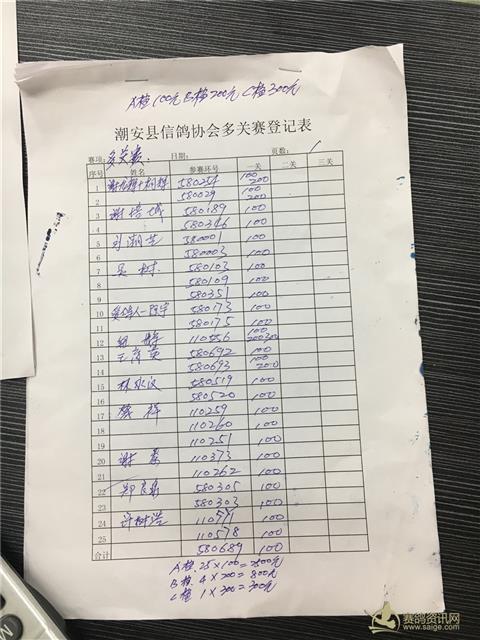 A档100元 B档200元 C档300元
潮安县信鸽协会多关赛登记表
赛项: 多关赛. 日期: 页数:
序号 姓名 参赛环号 一关 二关 三关
1 580254 100 200
2 580029 100 200
3 谢培城 580189 100
4 580346 100
5 580001 100
6 580003 100
7 吴树 580103 100
8 580109 100
9 580351 100
10 580173 100
11 580175 100
12 110556 100 200 300
13 580692 100
14 580693 100 200
15 林水汉 580519 100
16 580520 100
17 110259 100
18 110260 100
19 110251 100
20 110373 100
21 110262 100
22 580305 100
23 580303 100
24 许树浩 100
25 110578 100
合计 580689 100
A档. 25×100=2500元
B档. 4×200=800元
C档 1×300=300元
赛鸽资讯网
www.saige.com